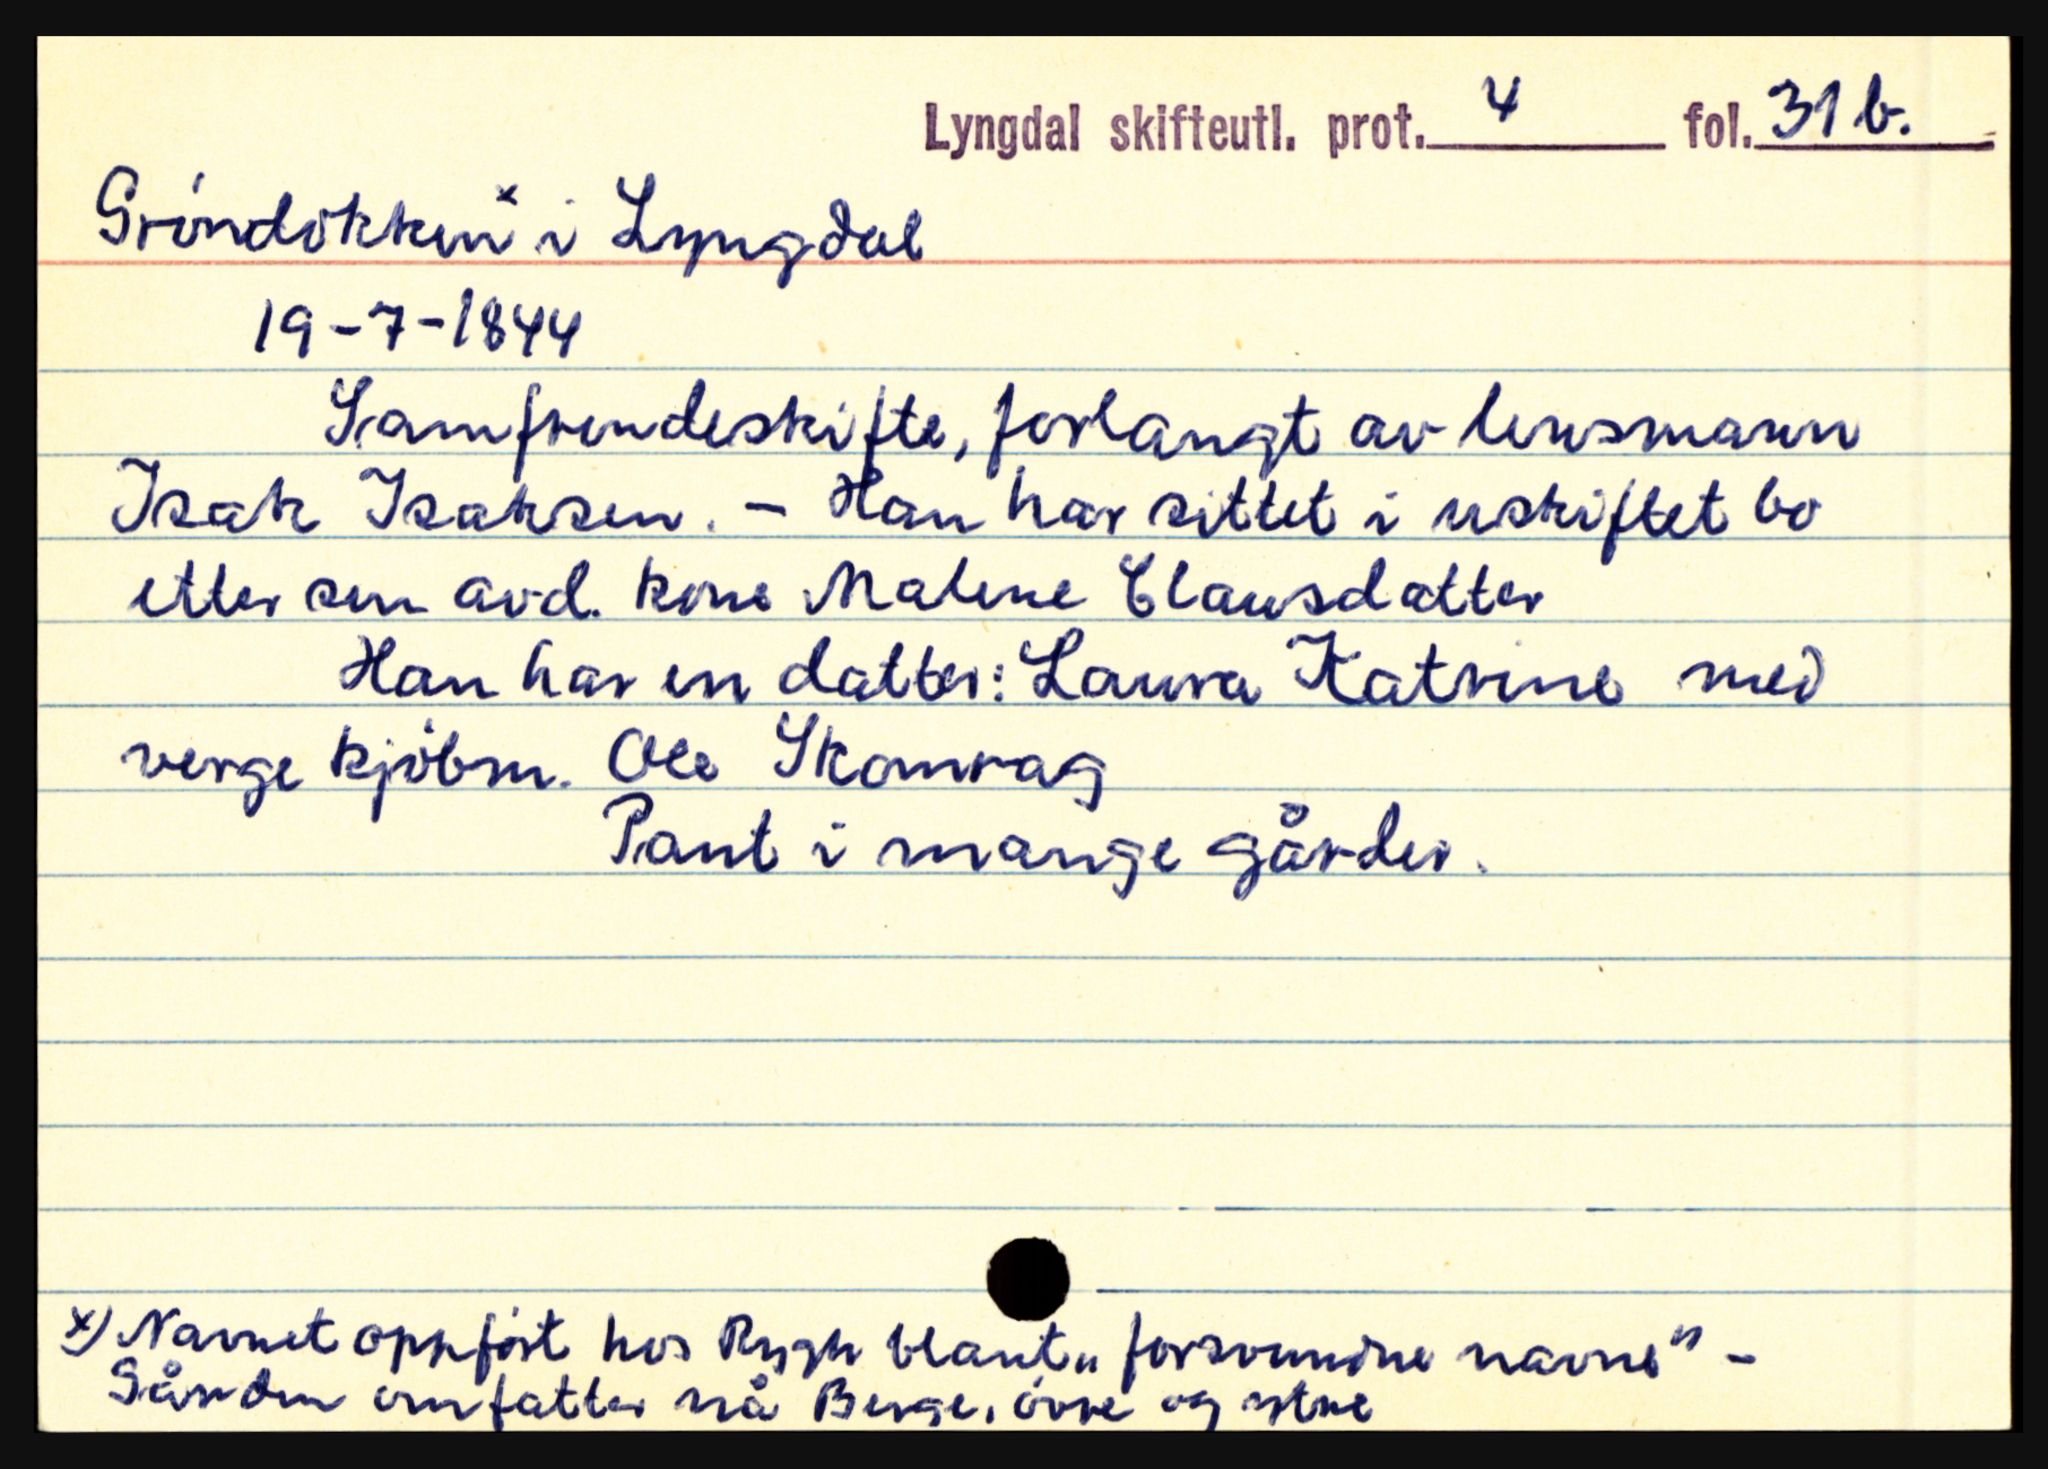 Lyngdal skifteutl. prot. 4 fol. 31 b.
Gröndokken x i Lyngdal
19-7-1844
Samfrendeskifte, forlangt av lensmann
Isak Isaksen. - Han har sittet i uskiftet bo
etter sin avd. kone Malene Clausdatter
Han har en datter: Laura Katrine med
verge kjöbm. Ole Skomrag
Pant i mange gårder.
x) Navnet oppfört hos Rygh blant „forsvundne navne" -
Gården omfatter nå Berge, övre og ytre